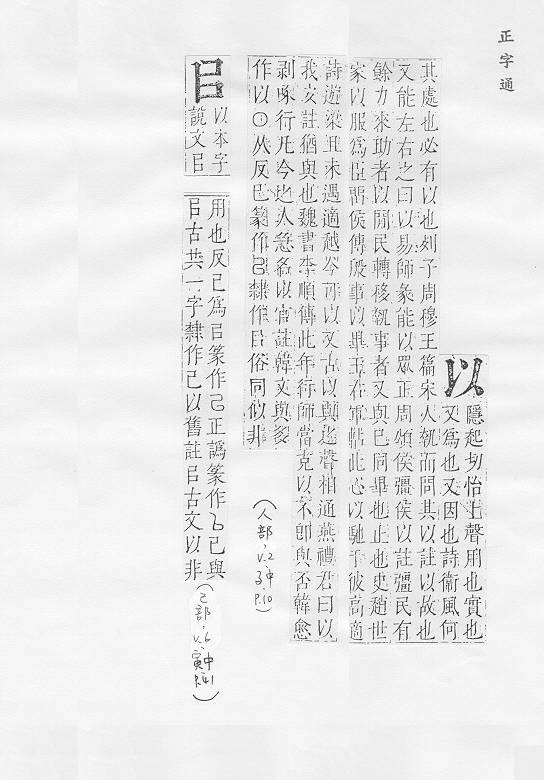 正字通
以
隱起切怡上聲用也實也
又爲也又因也詩衞風何
其處也必有以也列子周穆王篇宋人執而問其以註以故也
又能左右之曰以易師彖能以眾正周頌侯彊侯以註彊民有
餘力來助者以閒民轉移執事者又與已同畢也止也史趙世
家以服爲臣侯傳殷事以畢王在軍此心以馳于彼高適
詩遊梁且未遇適越今可以又古以與迤聲相通燕禮君曰以
我安註猶與也魏書李順傳此年行師當克以不卽與否韓愈
剥啄行凡今之人急名以官註韓文與多
作以○从反巳篆作㠯隸作㠯俗同佀非
(人部,v.2子中P.10)
㠯
以本字
說文㠯
用也反已爲㠯篆作正譌篆作已與
㠯古共一字隸作已以舊註㠯古文以非
(己部,v.6寅中P.41)